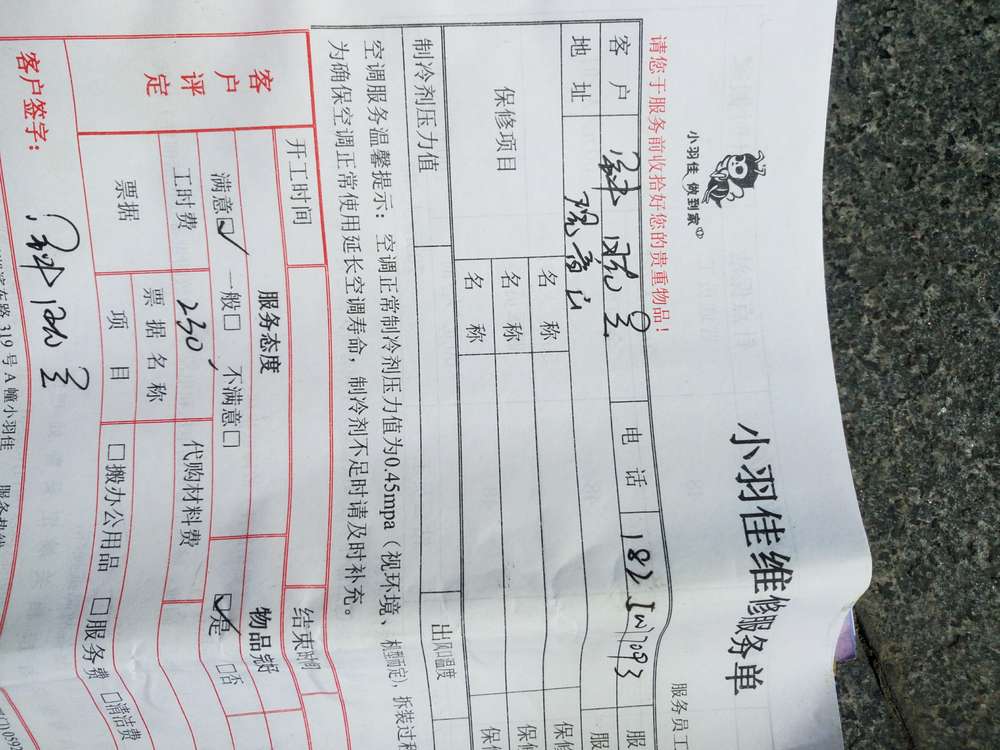 小羽佳 做到家
小羽佳维修服务单
请您于服务前收拾好您的贵重物品！
服务员工
客户
电话
服
地址
服
保修项目
名称
保修
名称
保修
名称
保
制冷剂压力值
出风口温度
空调服务温馨提示：空调正常制冷剂压力值为0.45mpa（视环境、机型而定），拆装过程
为确保空调正常使用延长空调寿命，制冷剂不足时请及时补充。
开工时间
结束时间
客户评定
服务态度
物品完好
满意☑ 一般□ 不满意□
☑是 □否
工时费
230
代购材料费
票据
票据名称
项目
□搬办公用品 □服务费 □清洁费
客户签字：
东路319号A幢小羽佳 服务热线
0592